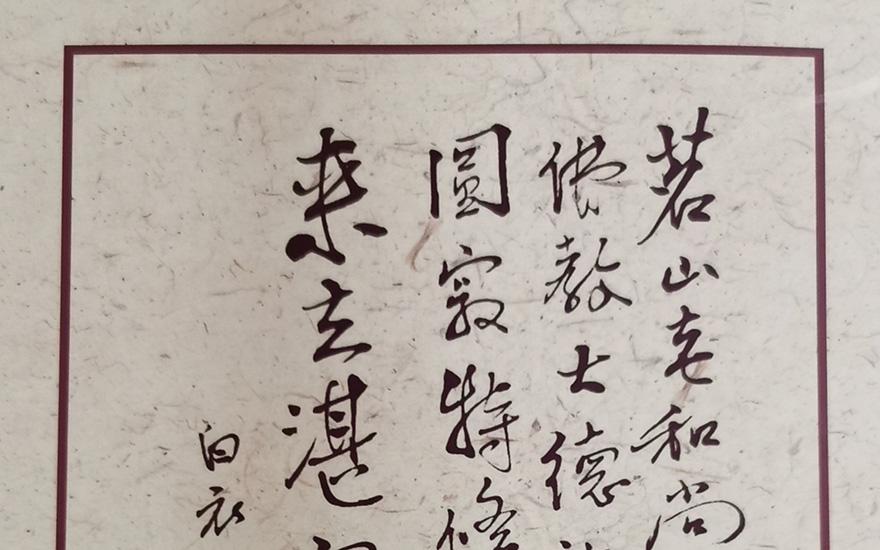 茗山老和尚
佛教大德
圓寂特修
来去湛
白衣